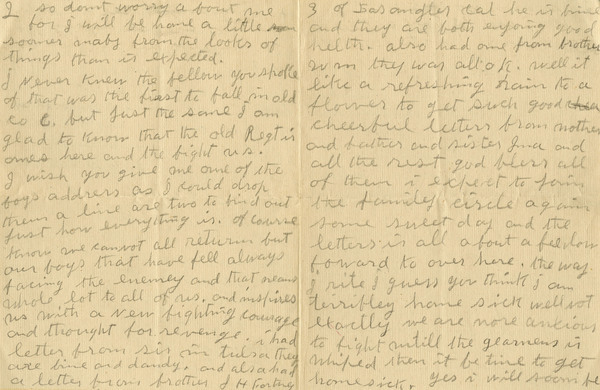 2 so dont worry a bout me
for I will be home a little
sooner maby from the looks of
things than is expected.
I Never knew the fellow you spoke
of that was the first to fall in old
co C. but just the same I am
glad to know that the old Regt is
over here and the fight us.
I wish you give me one of the
boys address as I could drop
them a line are two to find out
just how everything is. of course
know we can not all return but
our boys that have fell always
facing the enemey and that means
whole lot to all of us. and inspires
us with a new fighting courage
and thought for revenge. i had
letter from sis in tulsa they
are fine and dandy. and also had
a letter from brother J H
3 of Losangles Cal he is fine
and they are both enjoying good
helth. also had one from brother
they was all ok. well it
like a refreshing rain to a
flower to get such good
cheerful letters from mother
and father and sister Ina and
all the rest god bless all
of them i expect to join
the family circle again
some sweet day and the
letters is all about a fellow
foward to over here. the way
I rite I guess you think i am
terribley home sick well not
exactly we are more anxious
to fight untill the germens is
whiped then it be time to get
home sick. yes i will soon be